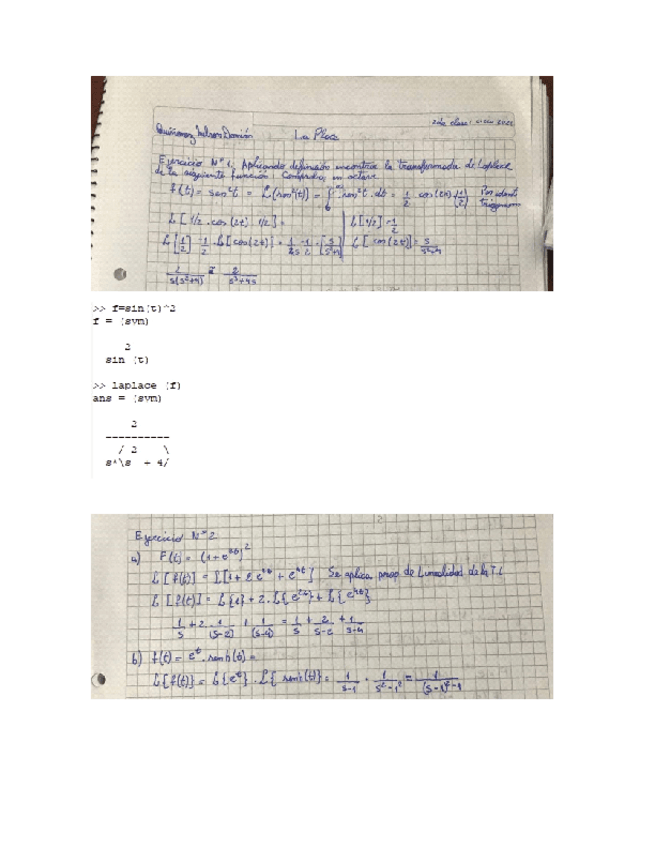 2da clase
Quiñonez Nelson Damián La Place
Ejercicio N° 1. Aplicando definición encontrar la transformada de Laplace
de la siguiente función. Comprobar en octave
f(t) = sen²t = L(sen²(t)) = ∫ sen²t . dt = 1/2 cos(2t) (1/2) Por ident
L[1/2 . cos(2t) 1/2] = L[1/2] = 1/2
L{1/2} - 1/2 . L[cos(2t)] = 1/2s - 1/2 . [s/s²+4] L[cos(2t)] = s/s²+4
2/s(s²+4) = 2/s³+4s
>> f=sin(t)^2
f = (sym)
2
sin (t)
>> laplace (f)
ans = (sym)
2
----------
/ 2 \
s*\s + 4/
Ejercicio N° 2
a) F(t) = (1+e²ᵗ)²
L[f(t)] = L[1 + 2 e²ᵗ + e⁴ᵗ] Se aplica prop de Linealidad de la T.L
L[f(t)] = L{1} + 2. L{e²ᵗ} + L{e⁴ᵗ}
1/s + 2 . 1/(s-2) + 1/(s-4) = 1/s + 2/s-2 + 1/s-4
b) f(t) = eᵗ . senh(t) =
L{f(t)} = L{eᵗ} . L{senh(t)} = 1/s-1 . 1/s²-1² = 1/(s-1)²-1